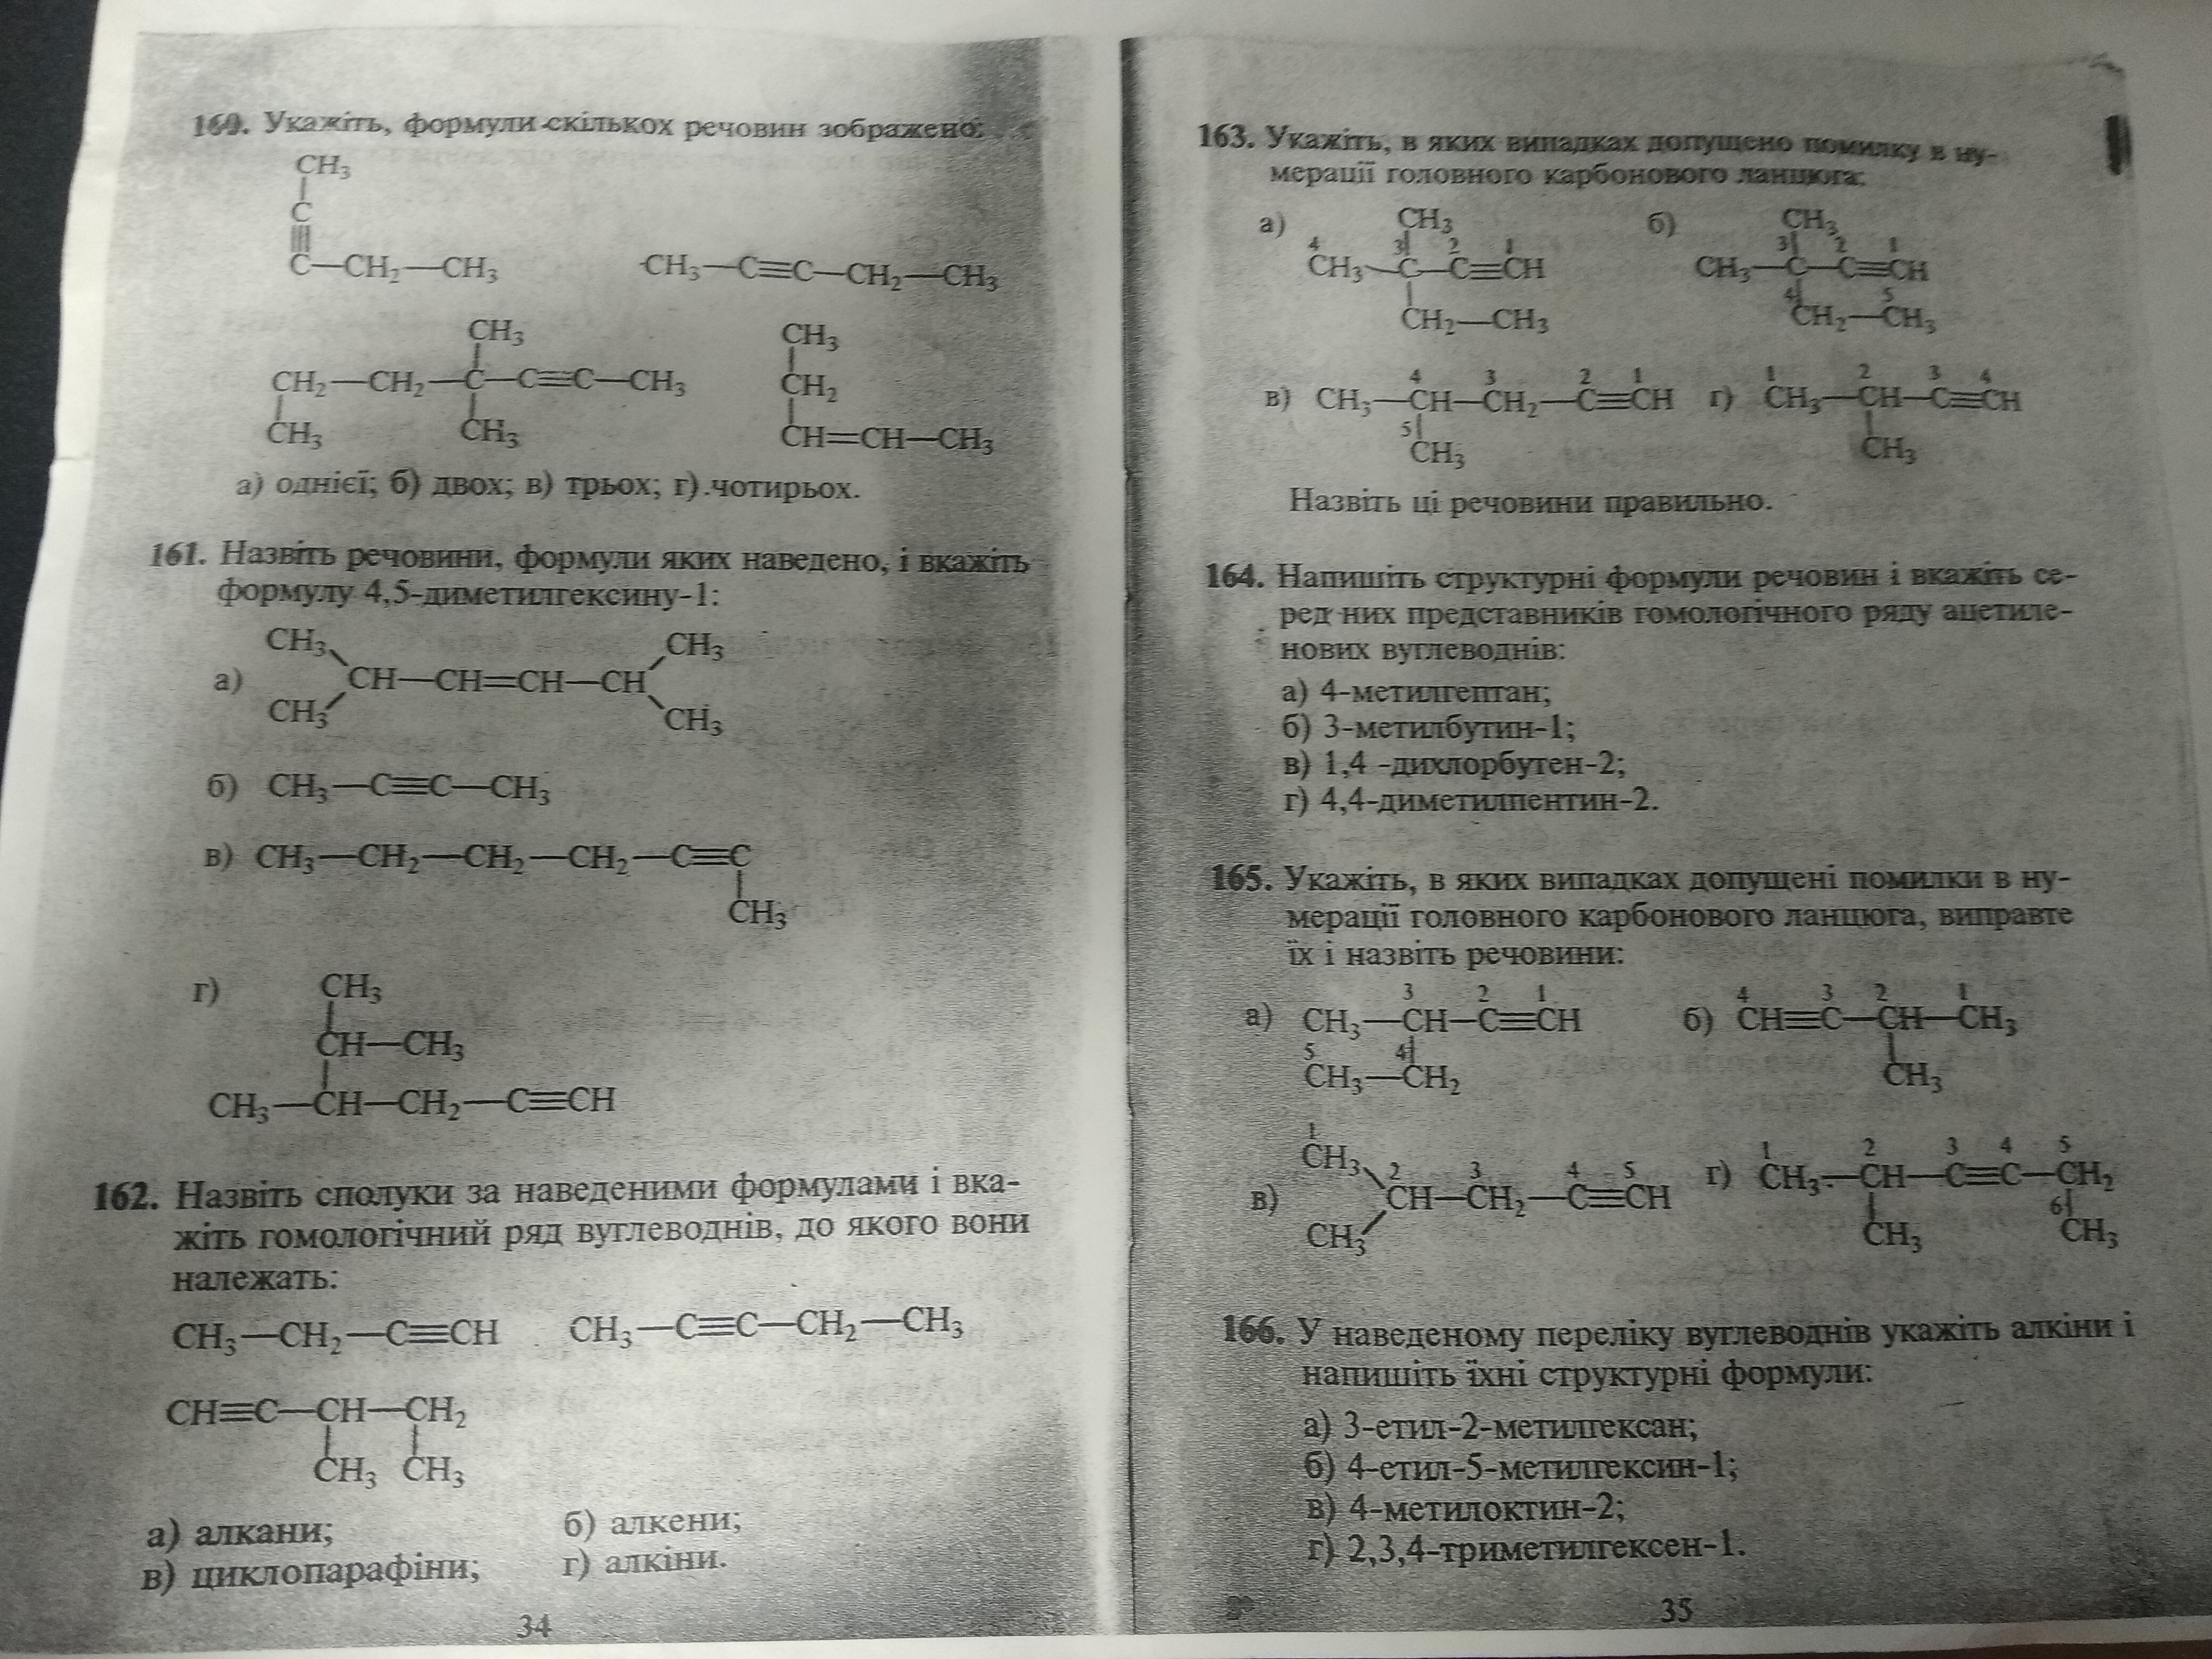 160. Укажіть, формули скількох речовин зображено:
CH₃
C
C—CH₂—CH₃
CH₃—C≡C—CH₂—CH₃
CH₃
CH₂—CH₂—C—C≡C—CH₃
CH₃ CH₃
CH₃
CH₂
CH=CH—CH₃
а) однієї; б) двох; в) трьох; г) чотирьох.
161. Назвіть речовини, формули яких наведено, і вкажіть
формулу 4,5-диметилгексину-1:
CH₃ CH₃
а) CH—CH=CH—CH
CH₃ CH₃
б) CH₃—C≡C—CH₃
в) CH₃—CH₂—CH₂—CH₂—C≡C
CH₃
г) CH₃
CH—CH₃
CH₃—CH—CH₂—C≡CH
162. Назвіть сполуки за наведеними формулами і вка-
жіть гомологічний ряд вуглеводнів, до якого вони
належать:
CH₃—CH₂—C≡CH CH₃—C≡C—CH₂—CH₃
CH≡C—CH—CH₂
CH₃ CH₃
а) алкани; б) алкени;
в) циклопарафіни; г) алкіни.
34
163. Укажіть, в яких випадках допущено помилку в ну-
мерації головного карбонового ланцюга:
а) CH₃
4 3 2 1
CH₃—C—C≡CH
CH₂—CH₃
б) CH₃
3 2 1
CH₃—C—C≡CH
4 5
CH₂—CH₃
4 3 2 1
в) CH₃—CH—CH₂—C≡CH
5
CH₃
1 2 3 4
г) CH₃—CH—C≡CH
CH₃
Назвіть ці речовини правильно.
164. Напишіть структурні формули речовин і вкажіть се-
ред них представників гомологічного ряду ацетиле-
нових вуглеводнів:
а) 4-метилгептан;
б) 3-метилбутин-1;
в) 1,4 -дихлорбутен-2;
г) 4,4-диметилпентин-2.
165. Укажіть, в яких випадках допущені помилки в ну-
мерації головного карбонового ланцюга, виправте
їх і назвіть речовини:
3 2 1
а) CH₃—CH—C≡CH
5 4
CH₃—CH₂
4 3 2 1
б) CH≡C—CH—CH₃
CH₃
1
CH₃ 2 3 4 5
в) CH—CH₂—C≡CH
CH₃
1 2 3 4 5
г) CH₃—CH—C≡C—CH₂
6
CH₃ CH₃
166. У наведеному переліку вуглеводнів укажіть алкіни і
напишіть їхні структурні формули:
а) 3-етил-2-метилгексан;
б) 4-етил-5-метилгексин-1;
в) 4-метилоктин-2;
г) 2,3,4-триметилгексен-1.
35